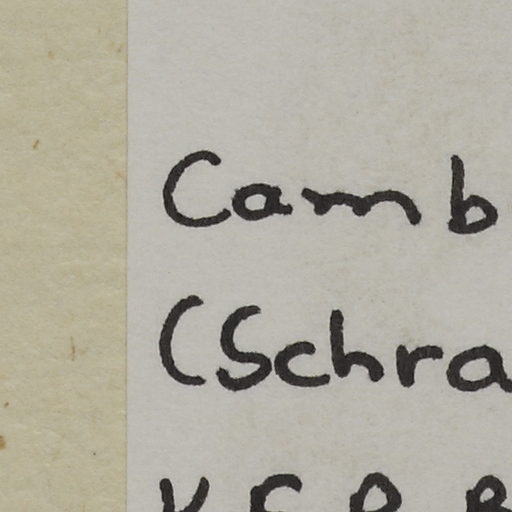 Camb
(Schra